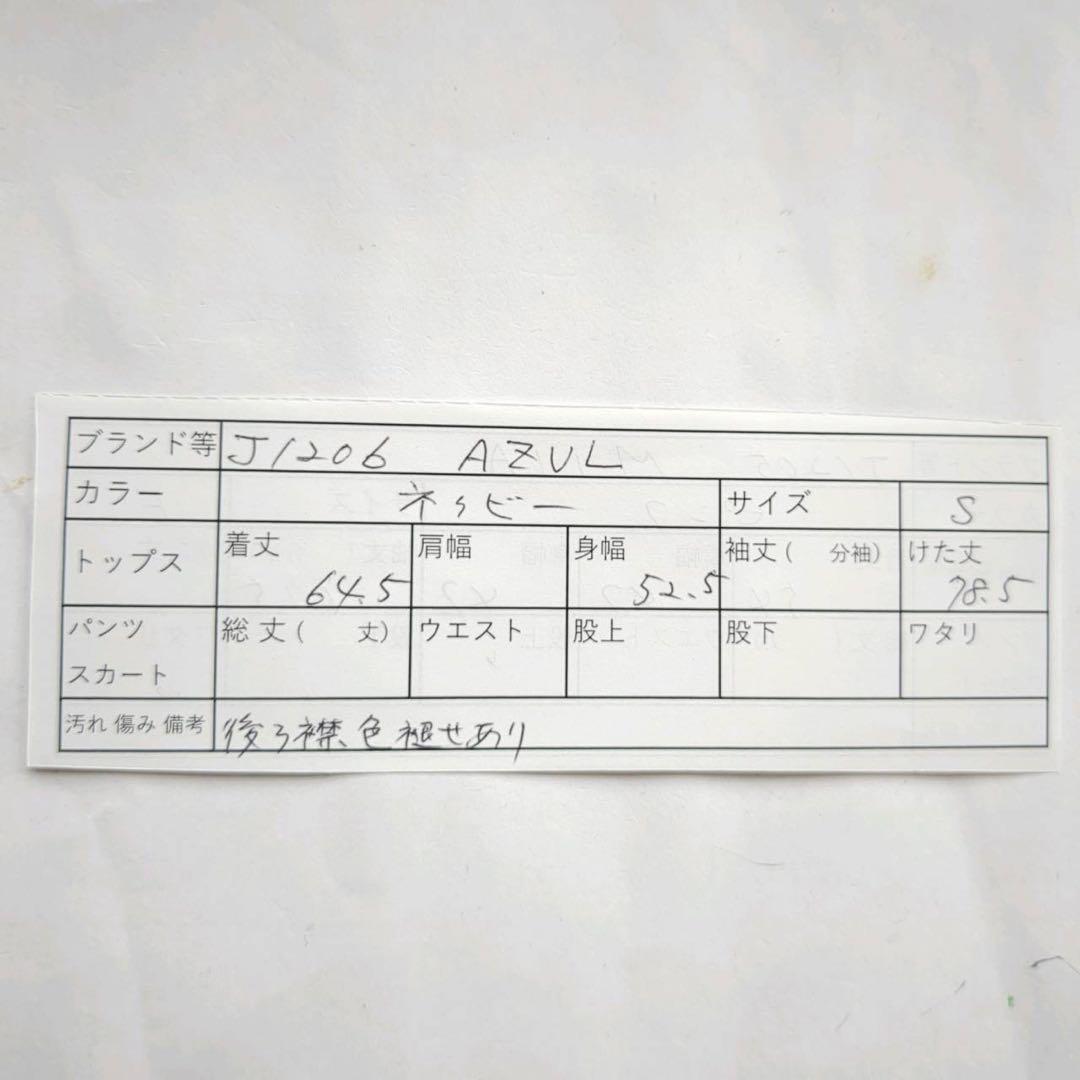 ブランド等 J1206 AZUL
カラー ネイビー サイズ S
トップス 着丈 64.5 肩幅 身幅 52.5 袖丈( 分袖) けた丈 78.5
パンツ スカート 総丈( 丈) ウエスト 股上 股下 ワタリ
汚れ 傷み 備考 後ろ襟、色褪せあり